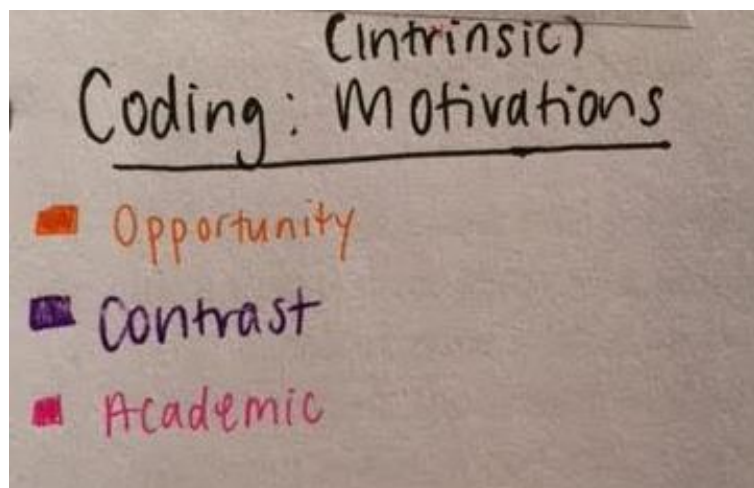 (Intrinsic)
Coding: Motivations
Opportunity
Contrast
Academic